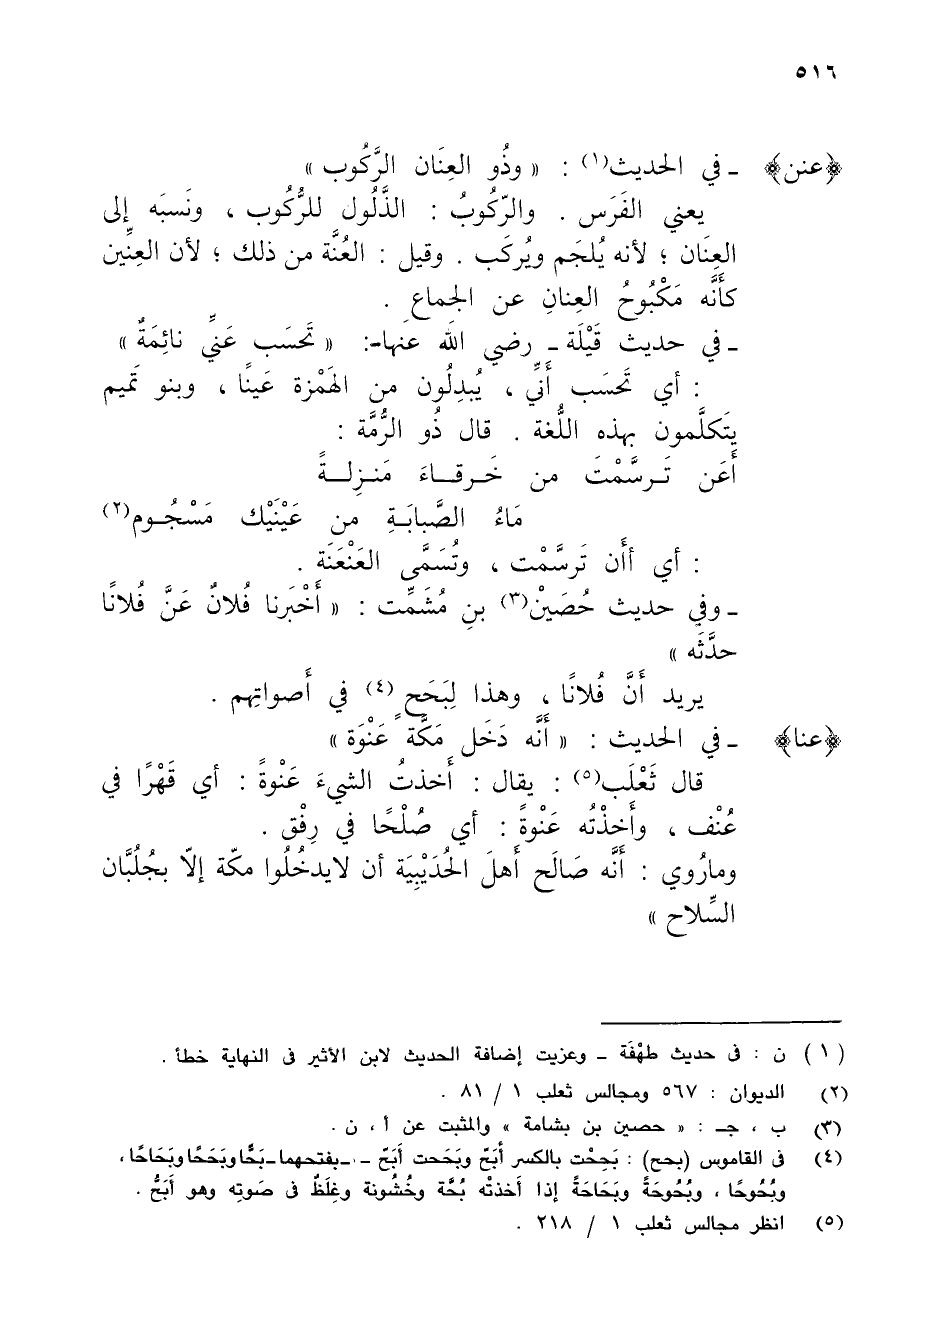 ٥١٦
﴿عنن﴾ ـ في الحديث(١) : « وذُو العِنَان الرَّكُوب »
يعني الفَرَس . والرّكوبُ : الذَّلُول للرُّكُوب ، ونَسبَه إلى
العِنَان ؛ لأنه يُلجَم ويُركَب . وقيل : العُنَّة من ذلك ؛ لأن العِنِّين
كأَنَّه مَكْبُوحُ العِنانِ عن الجماعِ .
ـ في حديث قَيْلَة ـ رضي الله عنها ـ: « تَحسَب عَنِّي نائِمَةٌ »
: أي تَحسَب أَنِّي ، يُبدِلُون من الهَمْزة عَينًا ، وبنو تَميم
يتَكلَّمون بهذه اللُّغة . قال ذُو الرُّمَّة :
أَعَن تَـرسَّمْتَ من خَـرقـاءَ مَنـزِلـةً
مَاءُ الصَّبابَـةِ من عَيْنَيْك مَسْجُـوم(٢)
: أي أأَن تَرسَّمْت ، وتُسَمَّى العَنْعَنَة .
ـ وفي حديث حُصَيْن(٣) بنِ مُشَمِّت : « أَخْبَرنا فُلانٌ عَنَّ فُلانًا
حدَّثَه »
يريد أَنَّ فُلانًا ، وهذا لِبَحَحٍ (٤) في أَصواتِهم .
﴿عنا﴾ ـ في الحديث : « أَنَّه دَخَل مَكَّة عَنْوَة »
قال ثَعْلَب(٥) : يقال : أَخذتُ الشيءَ عَنْوةً : أي قَهْرًا في
عُنْف ، وأَخذْتُه عَنْوةً : أي صُلْحًا في رِفْق .
ومارُوي : أَنَّه صَالَح أهلَ الحُدَيْبِيَة أن لايدخُلُوا مكّة إلاّ بجُلُبَّان
السِّلاح »
(١) ن : فى حديث طهْفَة ـ وعزيت إضافة الحديث لابن الأثير فى النهاية خطأ .
(٢) الديوان : ٥٦٧ ومجالس ثعلب ١ / ٨١ .
(٣) ب ، جـ : « حصين بن بشامة » والمثبت عن أ ، ن .
(٤) فى القاموس (بحح) : بَحِحْت بالكسر أبَحّ وبَحَحت أبَحّ ـ بفتحهما ـ بَحًّا وبَحَحًا وبَحَاحًا ،
وبُحُوحًا ، وبُحُوحَةً وبَحَاحَةً إذا أخذتْه بُحَّة وخُشُونة وغِلَظٌ فى صَوتِه وهو أبَحُّ .
(٥) انظر مجالس ثعلب ١ / ٢١٨ .